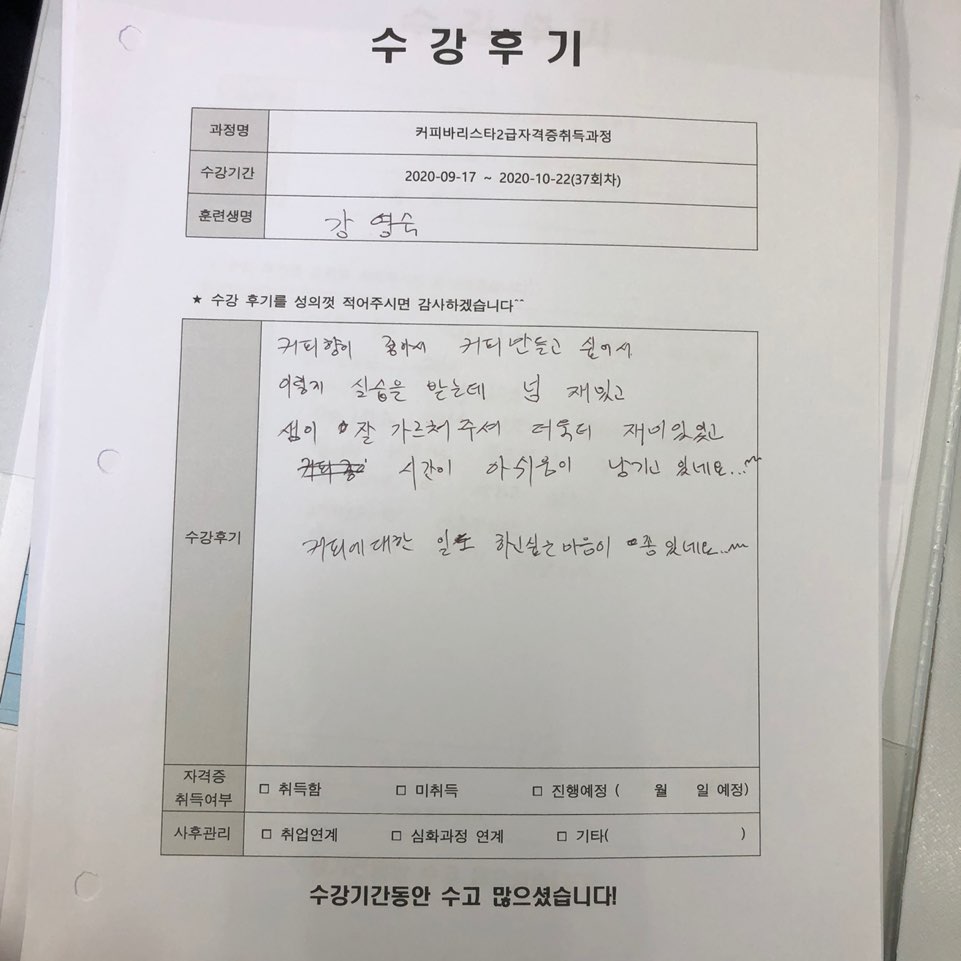 수 강 후 기
과정명 커피바리스타2급자격증취득과정
수강기간 2020-09-17 ~ 2020-10-22(37회차)
훈련생명 강 영숙
★ 수강 후기를 성의껏 적어주시면 감사하겠습니다~~
수강후기
커피향이 좋아서 커피만들고 싶어서
이렇게 실습을 받는데 넘 재밌고
샘이 잘 가르쳐주셔 더욱더 재미있었고
시간이 아쉬움이 남기고 있네요...~
커피에대한 일도 하고싶은마음이 있네요..~
자격증
취득여부 □ 취득함 □ 미취득 □ 진행예정 ( 월 일 예정)
사후관리 □ 취업연계 □ 심화과정 연계 □ 기타( )
수강기간동안 수고 많으셨습니다!